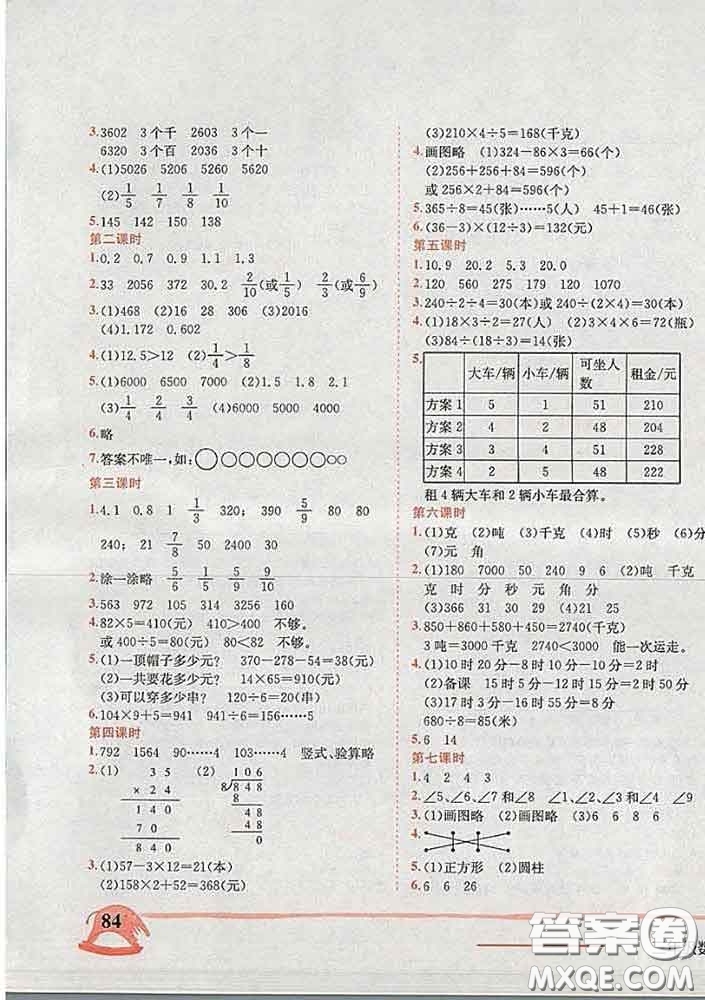 3.3602 3个千 2603 3个一
6320 3个百 2036 3个十
4.(1)5026 5206 5260 5620
(2)1/5 1/7 1/8 1/9
5.145 142 150 138
第二课时
1.0.2 0.7 0.9 1.1 1.3
2.33 2056 372 30.2 2/10(或1/5) 2/3(或6/9)
3.(1)468 (2)16 28 36 (3)2016
(4)1.172 0.602
4.(1)12.5>12 (2)1/4>1/8
5.(1)6000 6500 7000 (2)1.5 1.8 2.1
(3)1/4 2/4 3/4 (4)6200 6800 7200
6.略
7.答案不唯一,如:○○○○○○○○○
第三课时
1.4.1 0.8 1 1/3 320; 390 5/9 80 80
240; 21 7/8 50 2400 800
2.涂一涂略 5/6 1/5 5/5 5/9
3.563 972 105 314 3150 160
4.82×5=410(元) 410>400 不够。
或 400÷5=80(元) 80<82 不够。
5.(1)一顶帽子多少元? 370-278-54=38(元)
(2)一共要花多少元? 14×65=910(元)
(3)可以穿多少串? 120÷6=20(串)
6.104×9+5=941 941÷6=156……5
第四课时
1.792 1564 90……4 103……4 竖式、验算略
2.(1) 35 (2) 106
×24 8)848
140 8
70 48
840 48
0
3.(1)57-3×12=21(本)
(2)158×2+52=368(元)
84
(3)210×4÷5=168(千克)
4.画图略 (1)324-86×3=66(个)
(2)256+256+84=596(个)
或 256×2+84=596(个)
5.365÷8=45(张)……5(人) 45+1=46(张)
6.(36-3)×(12÷3)=132(元)
第五课时
1.10.9 20.2 5.3 20.0
2.120 560 275 179 120 1070
3.240÷2÷4=30(本)或 240÷(2×4)=30(本)
4.(1)18×3÷2=27(人) (2)3×4×6=72(瓶)
(3)84÷(18÷3)=14(张)
5.
大车/辆 小车/辆 可坐人数 租金/元
方案1 5 1 51 210
方案2 4 2 48 204
方案3 3 4 51 228
方案4 2 5 48 222
租4辆大车和2辆小车最合算。
第六课时
1.(1)克 (2)吨 (3)千克 (4)时 (5)秒 (6)分
(7)元 角
2.(1)180 7000 50 24 3 9 (2)吨 千克
克 时 分 秒 元 角 分
(3)366 31 30 29 (4)3
3.850+860+580+450=2740(千克)
3吨=3000千克 2740<3000 能一次运走。
4.(1)10时20分-8时10分=2时10分
(2)备课 15时5分-12时50分=2时15分
(3)17时5分-16时55分=10分
680÷8=85(米)
5.6 14
第七课时
1.4 2 4 3
2.∠5、∠6、∠7和∠8 ∠1、∠2和∠3 ∠4 ∠9
3.(1)画图略 (2)画图略 (3)6 6 8 6
4.
5.(1)正方形 (2)圆柱
6.6 6 26
答案圈
MXQE.COM
数